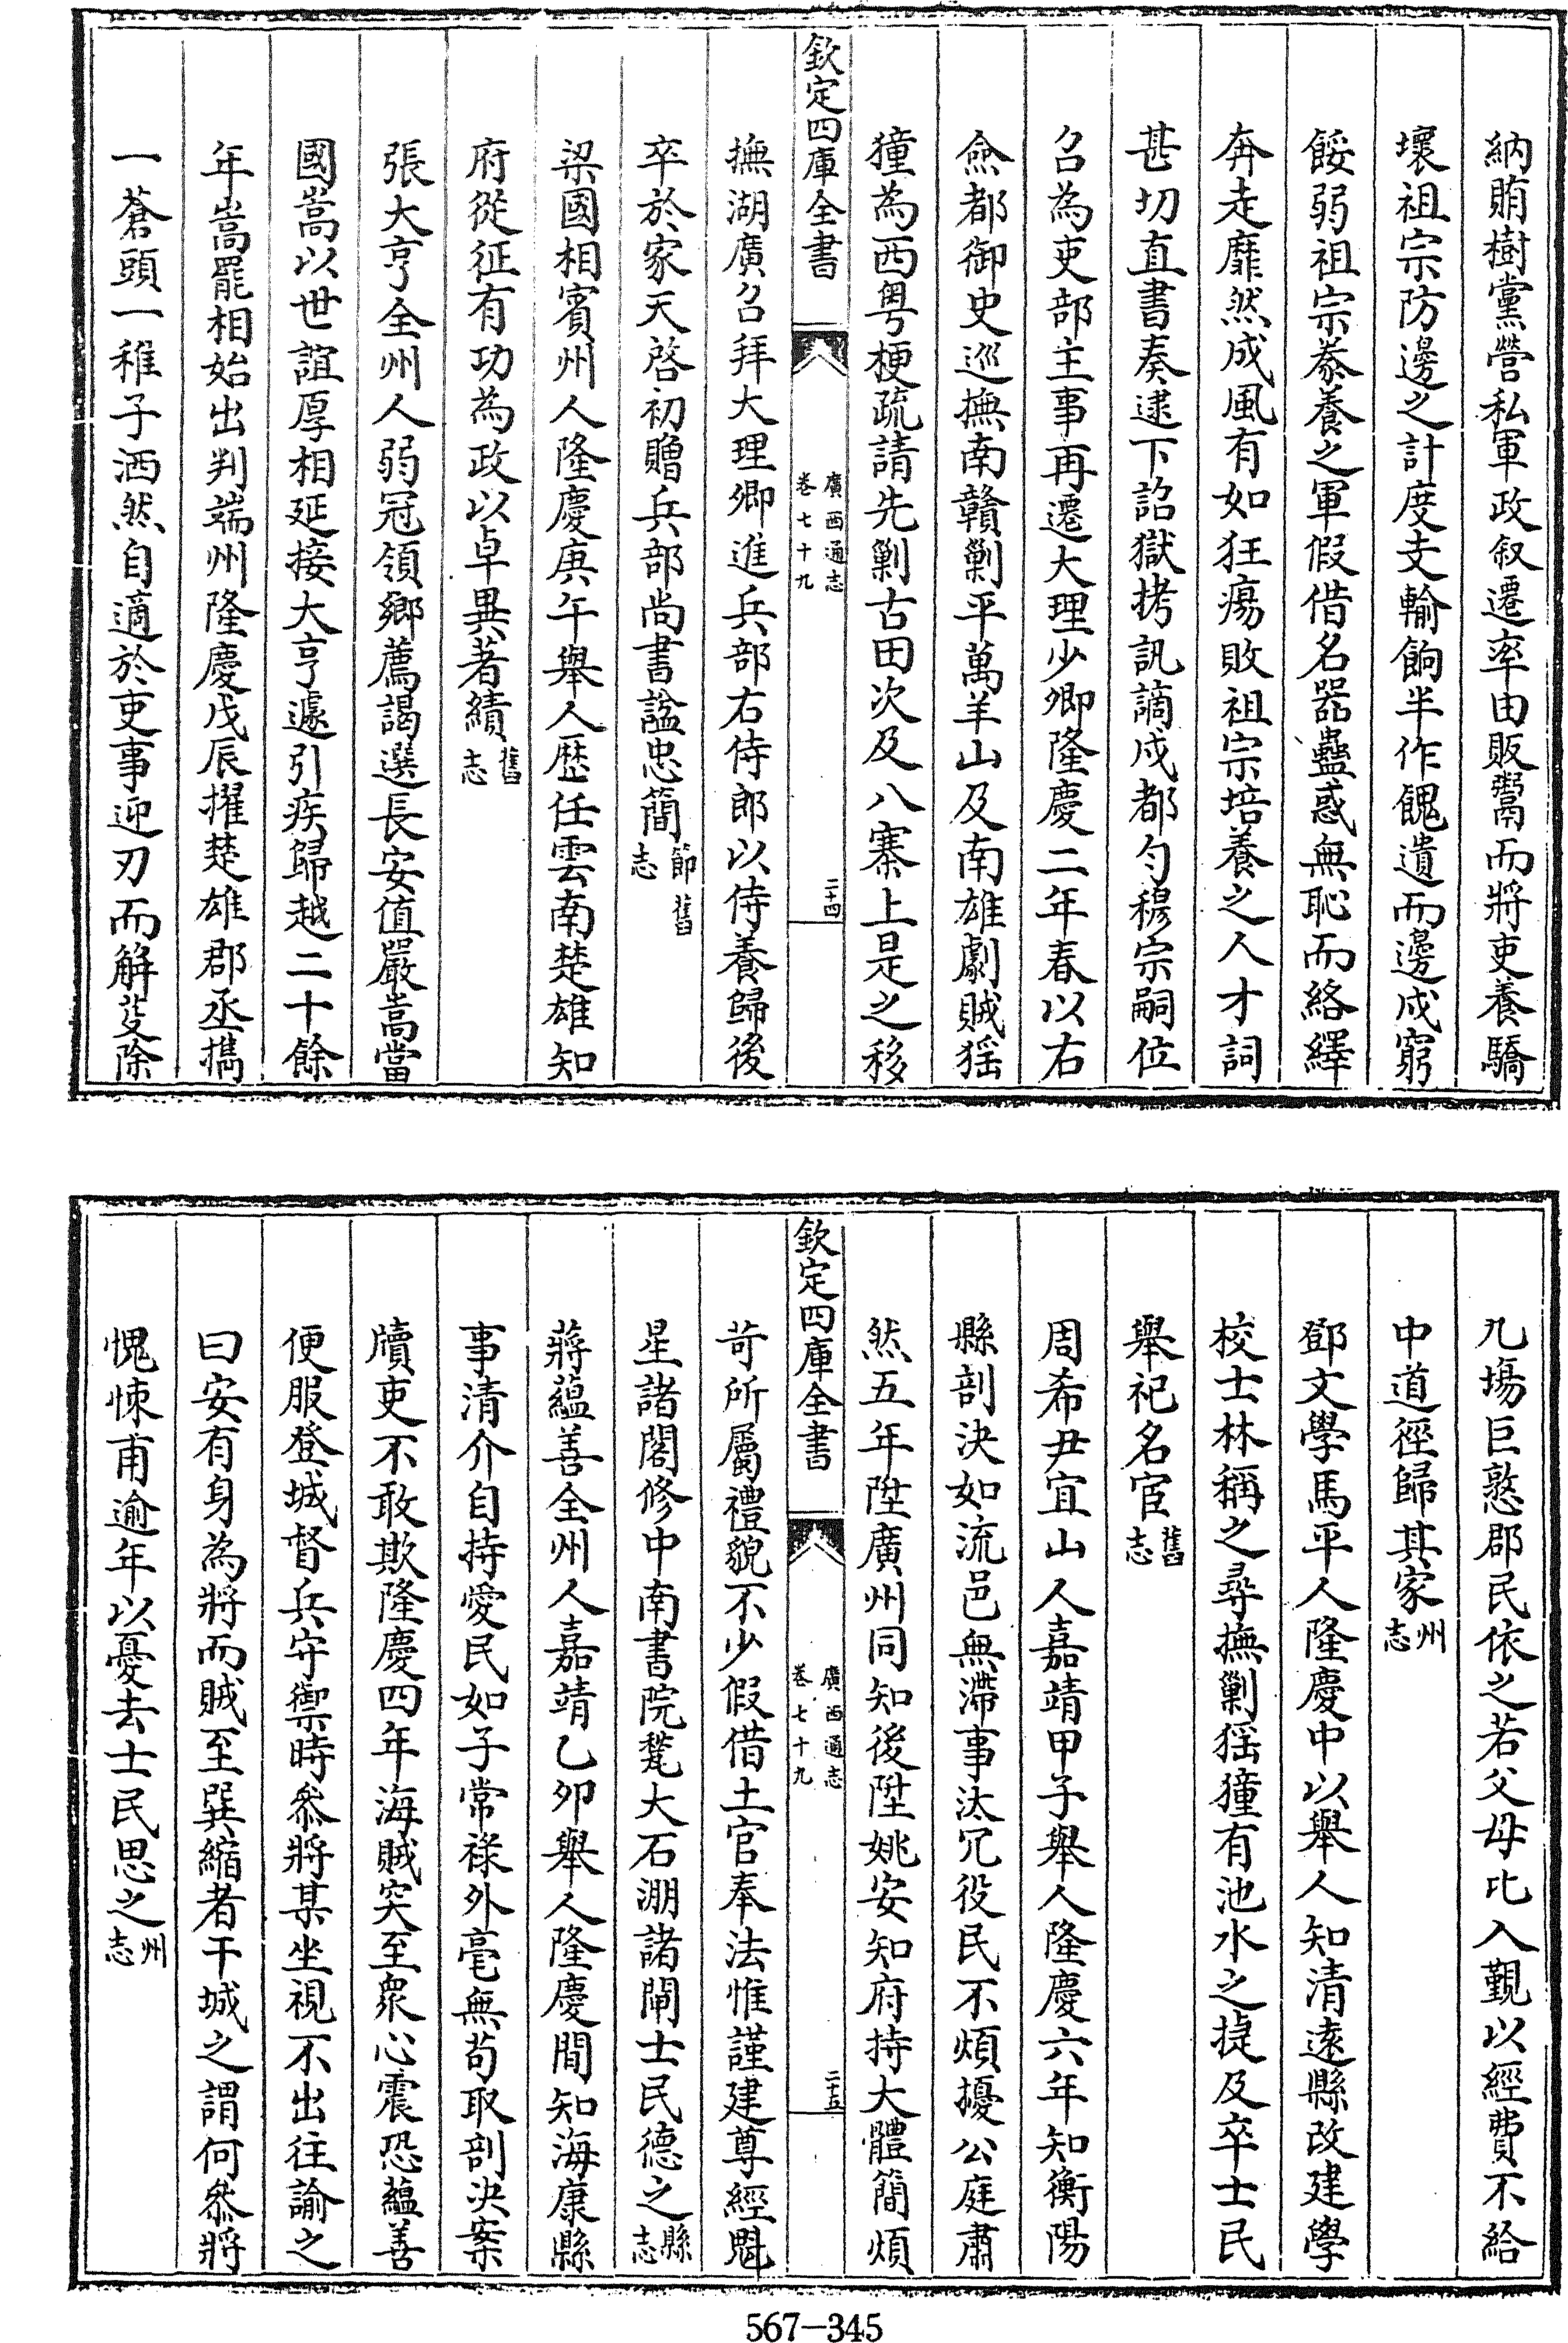 納賄樹黨營私軍政叙遷率由販鬻而將吏養驕
壞祖宗防邊之計度支輸餉半作餽遺而邊戍窮
餒弱祖宗豢養之軍假借名器蠱惑無恥而絡繹
奔走靡然成風有如狂瘍敗祖宗培養之人才詞
甚切直書奏逮下詔獄拷訊謫戍都勻穆宗嗣位
召為吏部主事再遷大理少卿隆慶二年春以右
僉都御史巡撫南贛剿平萬羊山及南雄劇賊猺
獞為西粤梗疏請先剿古田次及八寨上是之移
欽定四庫全書
廣西通志
卷七十九
二十四
撫湖廣召拜大理卿進兵部右侍郎以侍養歸後
卒於家天啓初贈兵部尚書諡忠簡節舊志
梁國相賓州人隆慶庚午舉人歷任雲南楚雄知
府從征有功為政以卓異著績舊志
張大亨全州人弱冠領鄉薦謁選長安值嚴嵩當
國嵩以世誼厚相延接大亨遽引疾歸越二十餘
年嵩罷相始出判端州隆慶戊辰擢楚雄郡丞攜
一蒼頭一稚子洒然自適於吏事迎刃而解芟除
凢場巨憝郡民依之若父母比入覲以經費不給
中道徑歸其家州志
鄧文學馬平人隆慶中以舉人知清遠縣改建學
校士林稱之尋撫剿猺獞有池水之捷及卒士民
舉祀名宦舊志
周希尹宜山人嘉靖甲子舉人隆慶六年知衡陽
縣剖決如流邑無滯事汰冗役民不煩擾公庭肅
然五年陞廣州同知後陞姚安知府持大體簡煩
欽定四庫全書
廣西通志
卷七十九
二十五
苛所屬禮貌不少假借土官奉法惟謹建尊經魁
星諸閣修中南書院甃大石淜諸閘士民德之縣志
蔣蘊善全州人嘉靖乙卯舉人隆慶間知海康縣
事清介自持愛民如子常祿外毫無苟取剖決案
牘吏不敢欺隆慶四年海賊突至衆心震恐蘊善
便服登城督兵守禦時叅將某坐視不出往諭之
曰安有身為將而賊至巽縮者干城之謂何叅將
愧悚甫逾年以憂去士民思之州志
567-345